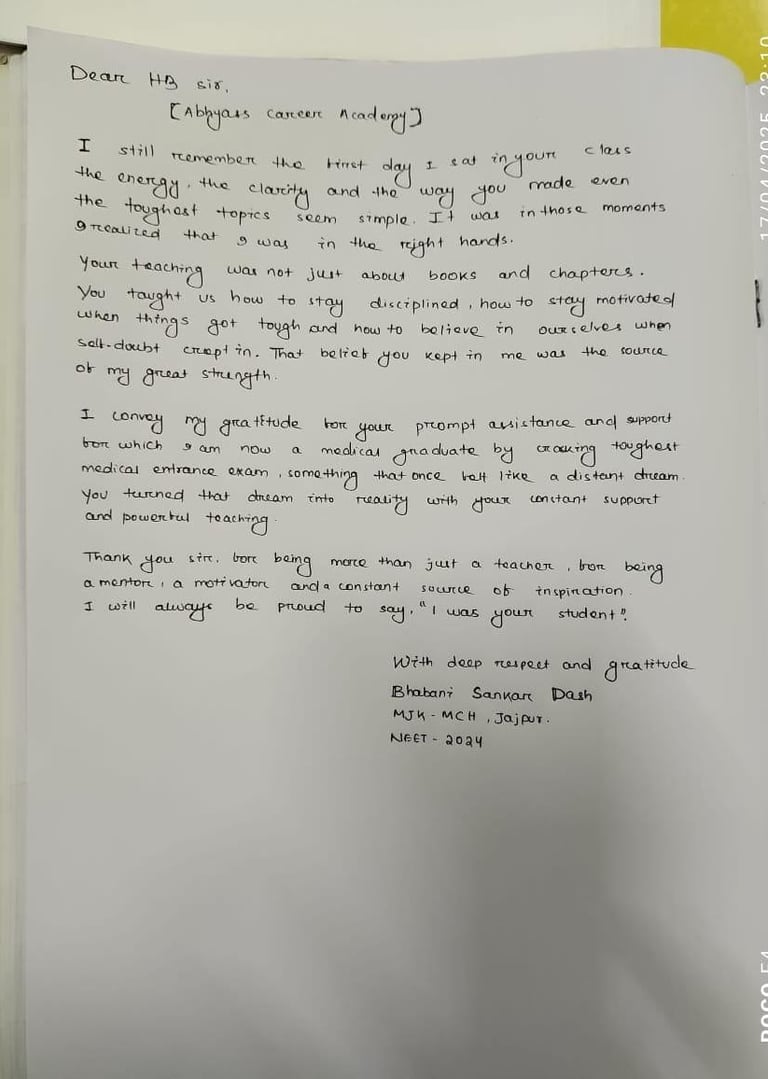 Dear HB sir,
[Abhyass Career Academy]
I still remember the first day I sat in your class
the energy, the clarity and the way you made even
the toughest topics seem simple. It was in those moments
I realized that I was in the right hands.
Your teaching was not just about books and chapters.
You taught us how to stay disciplined, how to stay motivated
when things got tough and how to believe in ourselves when
self-doubt crept in. That belief you kept in me was the source
of my great strength.
I convey my gratitude for your prompt assistance and support
for which I am now a medical graduate by cracking toughest
medical entrance exam, something that once felt like a distant dream.
You turned that dream into reality with your constant support
and powerful teaching.
Thank you sir. for being more than just a teacher, for being
a mentor, a motivator and a constant source of inspiration.
I will always be proud to say, "I was your student".
With deep respect and gratitude
Bhabani Sankar Dash
MJK - MCH, Jajpur.
NEET - 2024
17/04/2025 23:10